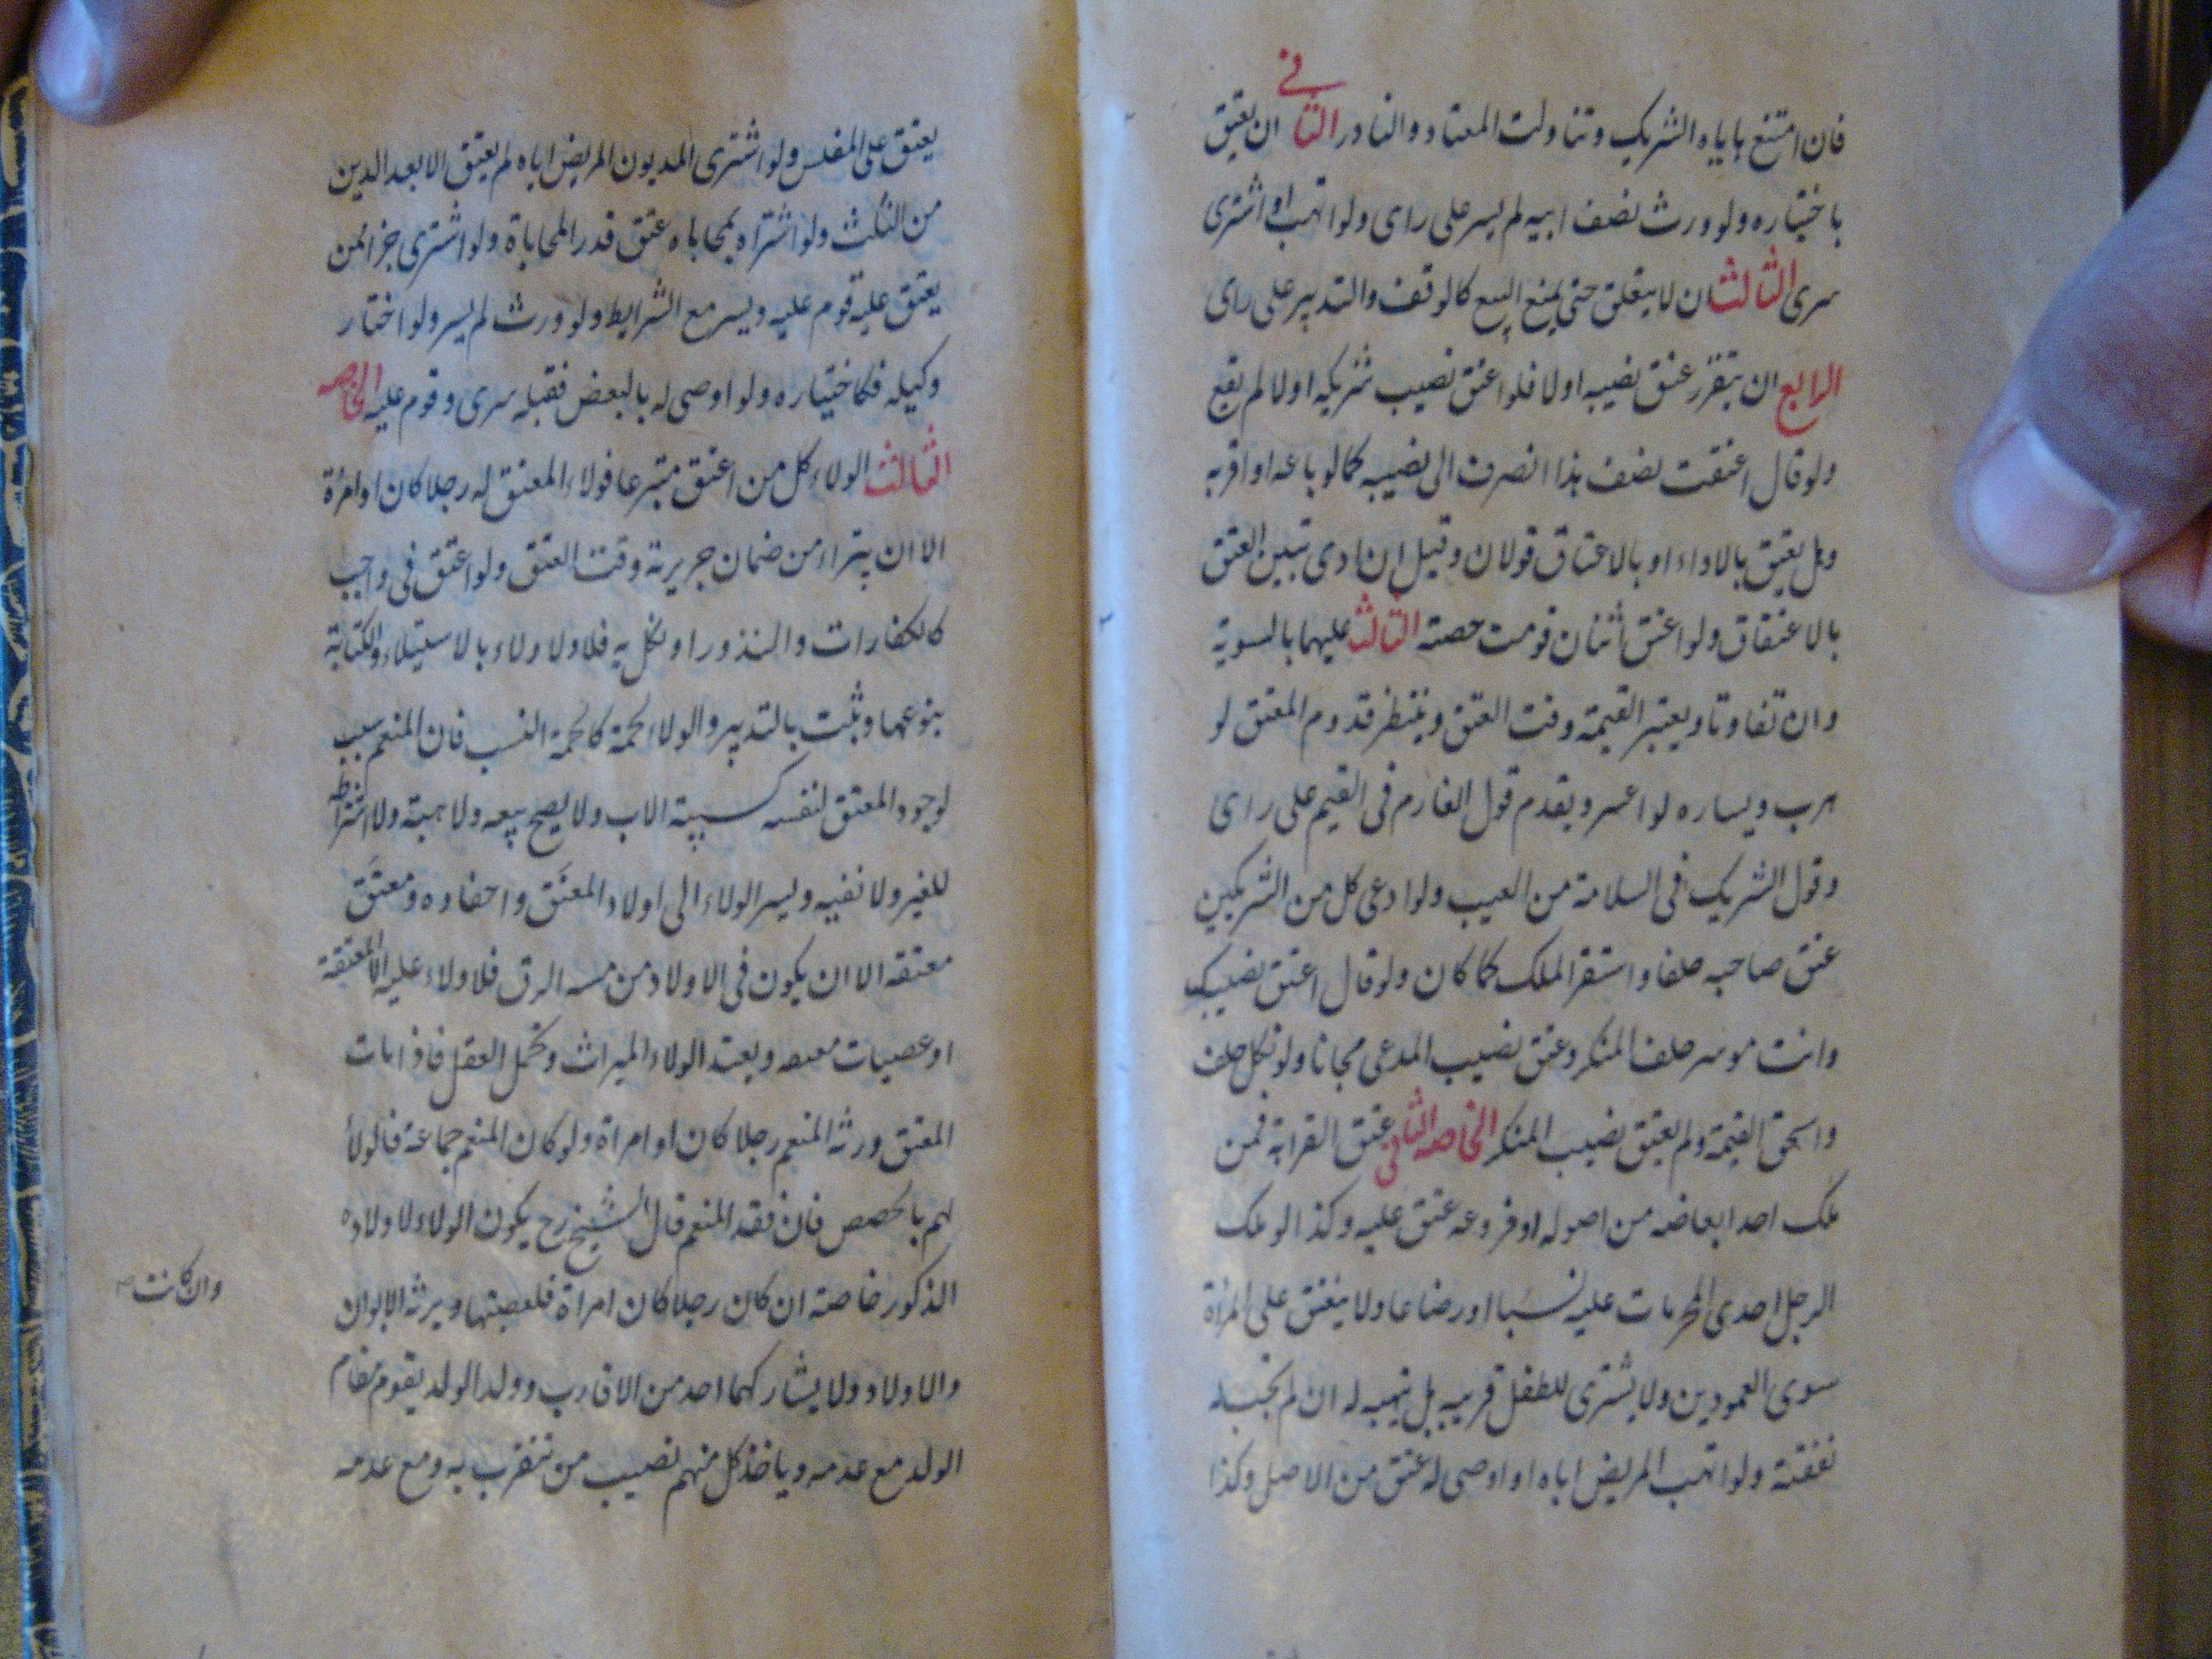 فان امتنع باياه الشريك وتناولت المعتاد والنادر الثاني ان يعتق
باختياره ولو ورث نصف ابيه لم يسر على راى ولو اتهب او اشترى
سرى الثالث ان لا يتعلق حق يمنع البيع كالوقف والتدبير على راى
الرابع ان يتقرر عتق نصيبه اولا فلو اعتق نصيب شريكه اولا لم يقع
ولو قال اعتقت نصف هذا انصرف الى نصيبه كما لو باعه او اقر به
وهل يعتق بالاداء او بالاعتاق قولان وقيل ان ادى تبين العتق
بالاعتقاق ولو اعتق اثنان قومت حصته الثالث عليهما بالسوية
وان تفاوتا ويعتبر القيمة وقت العتق وينتظر قدوم المعتق لو
هرب ويساره لو اعسر ويقدم قول الغارم فى القيم على راى
وقول الشريك فى السلامة من العيب ولو ادعى كل من الشريكين
عتق صاحبه حلفا واستقر الملك كما كان ولو قال اعتق نصيبك
وانت موسر حلف المنكر وعتق نصيب المدعى مجانا ولو نكل حلف
واستحق القيمة ولم يعتق نصيب المنكر الخاصه الثانى عتق القرابة فمن
ملك احد ابعاضه من اصوله او فروعه عتق عليه وكذا لو ملك
الرجل احدى المحرمات عليه نسبا او رضاعا ولا ينعتق على المراة
سوى العمودين ولا يشترى للطفل قريبه بل يتهبه له ان لم تجب له
نفقته ولو اتهب المريض اباه او اوصى له عتق من الاصل وكذا
يعتق على المفلس ولو اشترى المديون المريض اباه لم يعتق الا بعد الدين
من الثلث ولو اشتراه بمحاباه عتق قدر المحاباة ولو اشترى جزا ممن
يعتق عليه قوم عليه ويسر مع الشرايط ولو ورث لم يسر ولو اختار
وكيله فكاختياره ولو اوصى له بالبعض فقبله سرى وقوم عليه الخاصه
الثالث الولاء كل من اعتق متبرعا فولاء المعتق له رجلا كان او امرأة
الا ان يتبراء من ضمان جريرته وقت العتق ولو اعتق فى واجب
كالكفارات والنذور او نكل به فلا ولا ولاء بالاستيلاء والكتابة
بنوعيها وثبت بالتدبير والولاء لحمة كلحمة النسب فان المنعم سبب
لوجود المعتق لنفسه كسببية الاب ولا يصح بيعه ولا هبته ولا اشتراطه
للغير ولا نفيه ويسر الولاء الى اولاد المعتَق واحفاده ومعتَق
معتقه الا ان يكون فى الاولاد من مسه الرق فلا ولاء عليه الا لمعتقه
او عصبات معتقه ويعتد الولاء الميراث وتحمل العقل فاذا مات
المعتق ورثه المنعم رجلا كان او امراة ولو كان المنعم جماعة فالولأ
لهم بالحصص فان فقد المنعم قال الشيخ رح يكون الولاء لاولاده
الذكور خاصة ان كان رجلا كان امراة فلعصبتها ويرثه الابوان
وان كانت
والاولاد ولا يشاركهما احد من الاقارب وولد الولد يقوم مقام
الولد مع عدمه وياخذ كل منهم نصيب من تتقرب به ومع عدمه